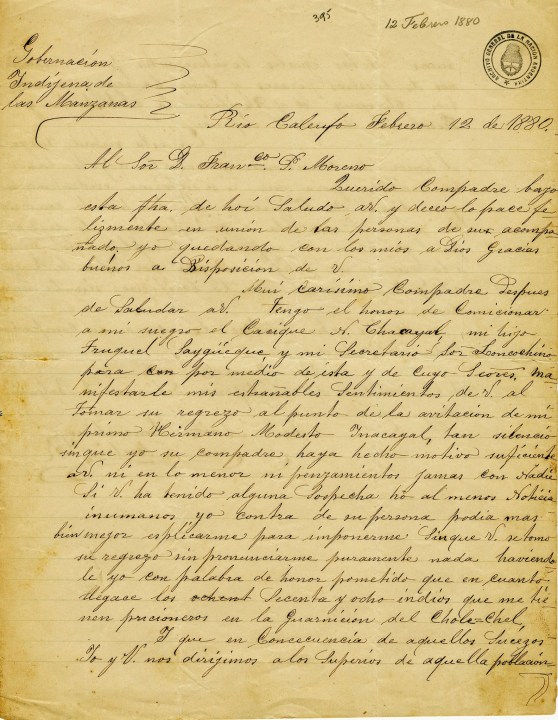 395
12 Febrero 1880
ARCHIVO GENERAL DE LA NACION ARGENTINA
Gobernación
Indíjena de
las Manzanas
Río Caleufo Febrero 12 de 1880.
Al Sor D. Franco. P. Moreno
Querido Compadre bajo
esta fha. de hoi Saludo aV. y deceo lo pace fe
lizmente en unión de las personas de sus acompa
nado, yo quedando con los mios a Dios Gracias
buenos a Disposición de V.
Mui carisimo Compadre Despues
de Saludar aV. Tengo el honor de Comicionar
a mi suegro el Cacique N. Chacayal, mi hijo
Truquel Saygüeque y mi Secretario Sor Loncochino
para con por medio de esta y de Cuyo Seores, ma
nifestarle mis estranables Sentimientos de V. al
Tomar su regrezo al punto de la avitacion de mi
primo Hirmano Modesto Inacayal, tan silencio
sinque yo su compadre haya hecho motivo suficiente
aV. ni en lo menor ni penzamientos jamas con Nadie
Si V. ha tenido alguna Sospecha hó al menos Noticia
inumanos yo contra de su persona podia mas
bien mejor esplicarme para imponerme Sinque V. se tomo
su regrezo sin pronunciarme puramente nada haviendo
le yo con palabra de honor prometido que en cuanto
llegace los ochent Secenta y ocho indios que me tie
nen pricioneros en la Guarnicion del Chole-Chel,
I que en Concecuencia de aquellos Sucezos
Yo y V. nos dirijimos a los Superios de aquella población